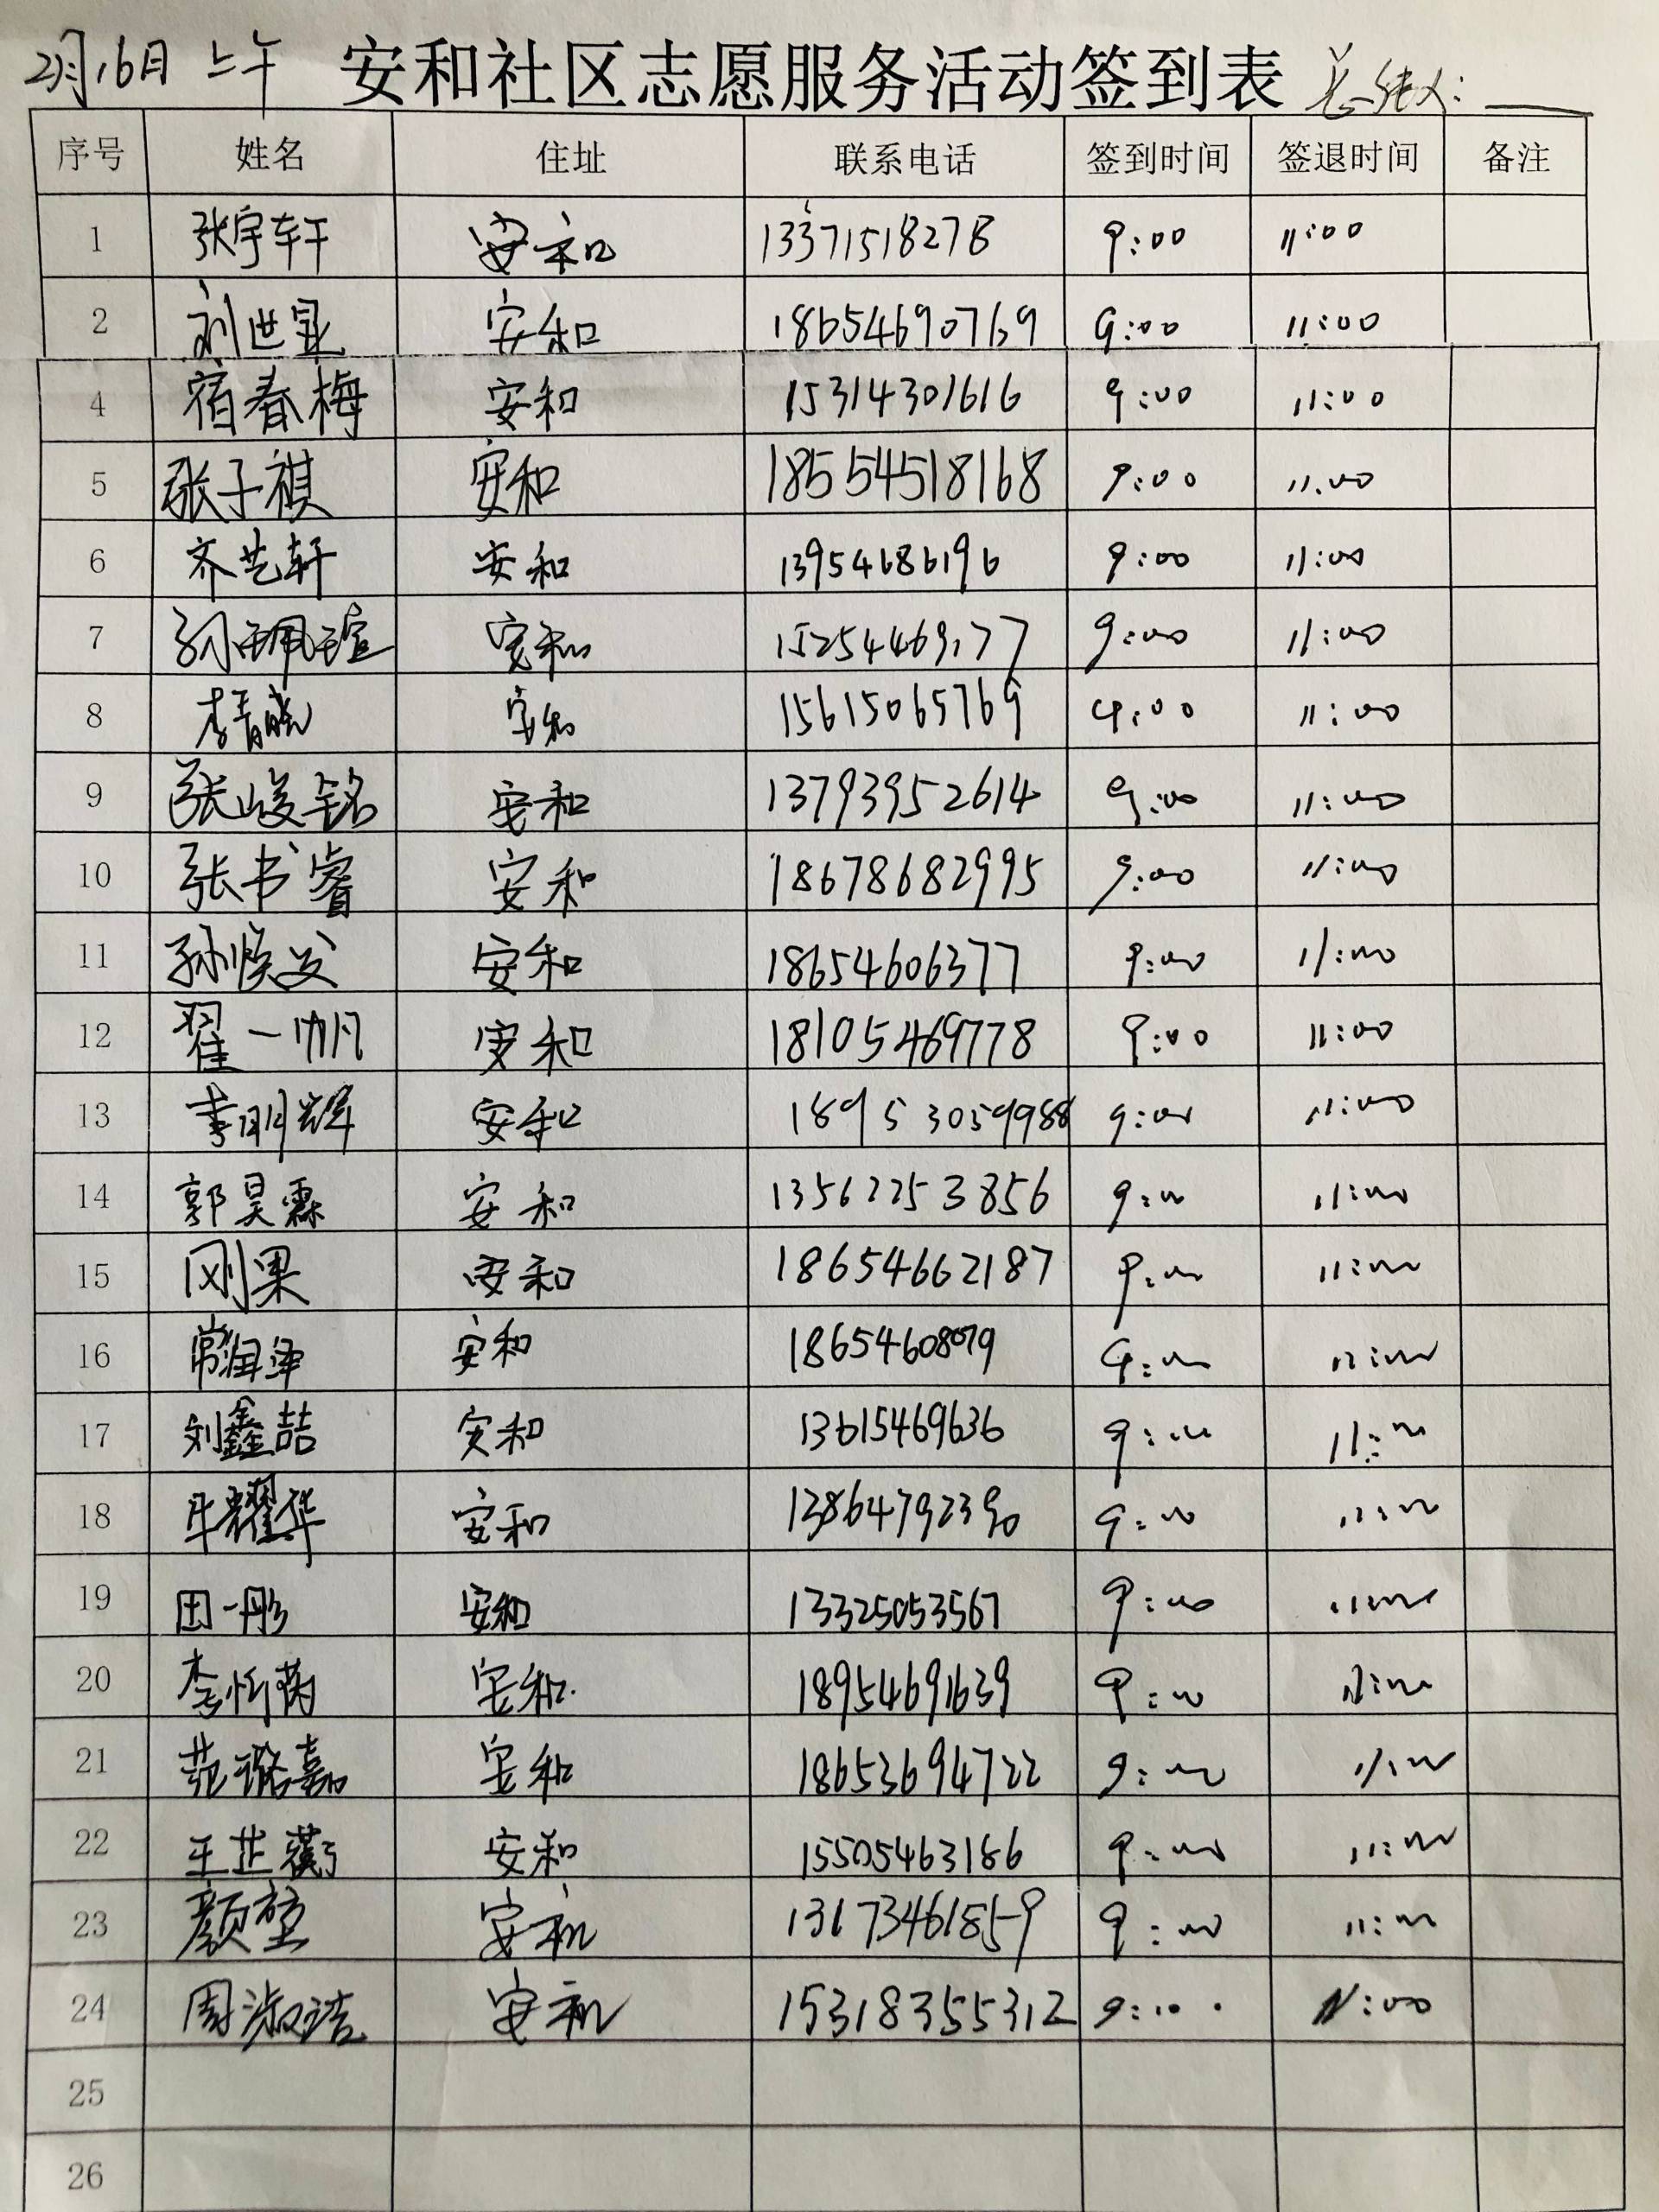 2月16日 上午 安和社区志愿服务活动签到表
序号 姓名 住址 联系电话 签到时间 签退时间 备注
1 张宇轩 安和 13371518278 9:00 11:00
2 刘世显 安和 18654690769 9:00 11:00
4 宿春梅 安和 15314301616 9:00 11:00
5 张子祺 安和 18554518168 9:00 11:00
6 齐艺轩 安和 13954686196 9:00 11:00
7 孙珮瑄 安和 15254469177 9:00 11:00
8 李青晓 安和 15615065769 9:00 11:00
9 张峻铭 安和 13793952614 9:00 11:00
10 张书睿 安和 18678682995 9:00 11:00
11 安和 18654606377 9:00 11:00
12 翟一帆 安和 18105469778 9:00 11:00
13 李明辉 安和 18953059988 9:00 11:00
14 郭昊霖 安和 13562253856 9:00 11:00
15 刚果 安和 18654662187 9:00 11:00
16 常润泽 安和 18654608079 9:00 11:00
17 刘鑫喆 安和 13615469636 9:00 11:00
18 牟耀华 安和 13864792390 9:00 11:00
19 田一彤 安和 13325053567 9:00 11:00
20 李忻芮 安和 18954691639 9:00 11:00
21 范璐嘉 安和 18653694722 9:00 11:00
22 王芷蘅 安和 15505463186 9:00 11:00
23 颜堃 安和 13173461859 9:00 11:00
24 周淑洁 安和 15318355312 9:10 11:00
25
26